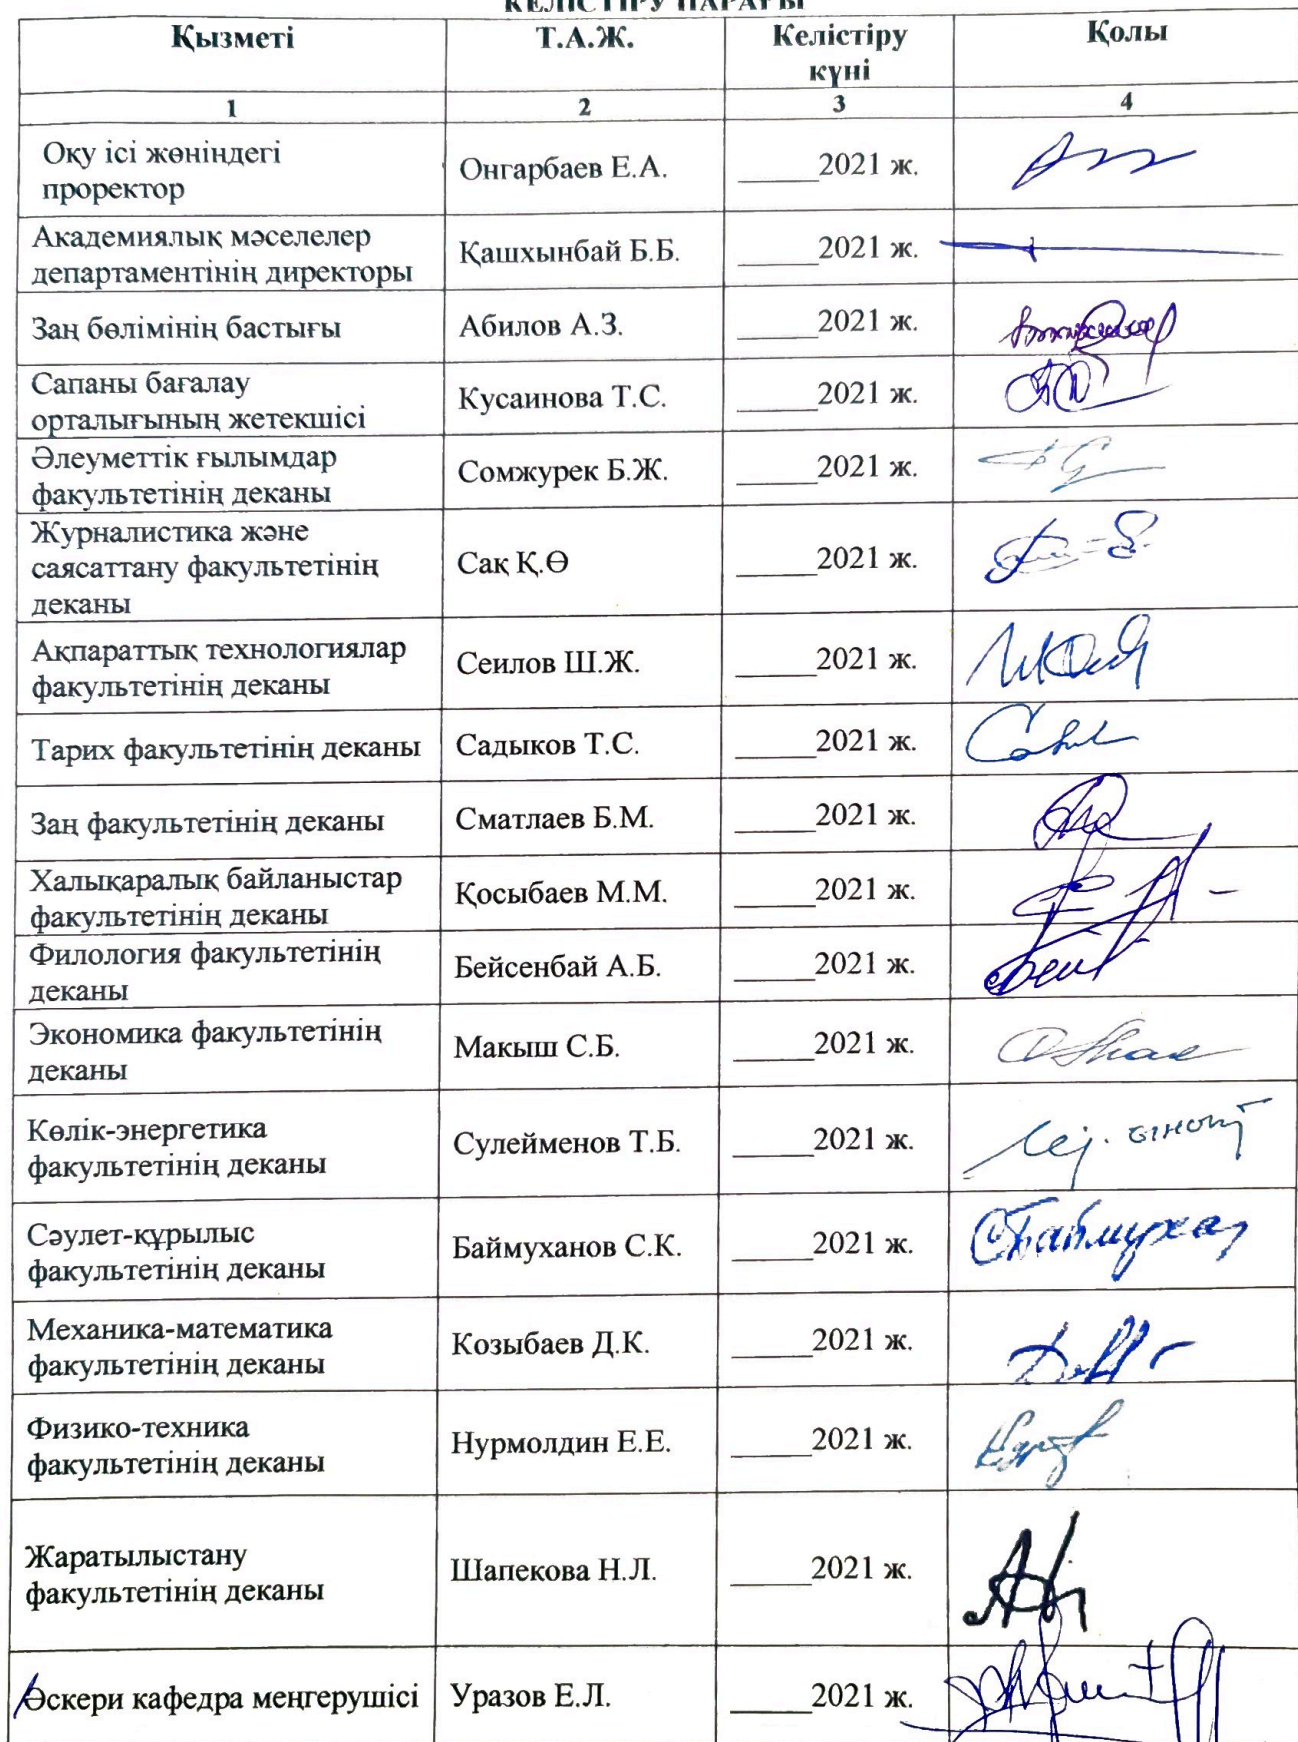 КЕЛІСТІРУ ПАРАҒЫ
Қызметі Т.А.Ж. Келістіру Қолы
күні
1 2 3 4
Оқу ісі жөніндегі
проректор Онгарбаев Е.А. _____2021 ж.
Академиялық мәселелер
департаментінің директоры Қашхынбай Б.Б. _____2021 ж.
Заң бөлімінің бастығы Абилов А.З. _____2021 ж.
Сапаны бағалау
орталығының жетекшісі Кусаинова Т.С. _____2021 ж.
Әлеуметтік ғылымдар
факультетінің деканы Сомжурек Б.Ж. _____2021 ж.
Журналистика және
саясаттану факультетінің Сақ Қ.Ө _____2021 ж.
деканы
Ақпараттық технологиялар
факультетінің деканы Сеилов Ш.Ж. _____2021 ж.
Тарих факультетінің деканы Садыков Т.С. _____2021 ж.
Заң факультетінің деканы Сматлаев Б.М. _____2021 ж.
Халықаралық байланыстар
факультетінің деканы Қосыбаев М.М. _____2021 ж.
Филология факультетінің
деканы Бейсенбай А.Б. _____2021 ж.
Экономика факультетінің
деканы Макыш С.Б. _____2021 ж.
Көлік-энергетика
факультетінің деканы Сулейменов Т.Б. _____2021 ж.
Сәулет-құрылыс
факультетінің деканы Баймуханов С.К. _____2021 ж.
Механика-математика
факультетінің деканы Козыбаев Д.К. _____2021 ж.
Физико-техника
факультетінің деканы Нурмолдин Е.Е. _____2021 ж.
Жаратылыстану
факультетінің деканы Шапекова Н.Л. _____2021 ж.
Әскери кафедра меңгерушісі Уразов Е.Л. _____2021 ж.